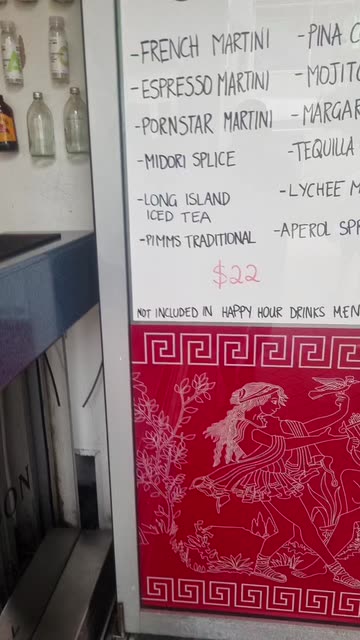 -FRENCH MARTINI
-ESPRESSO MARTINI
-PORNSTAR MARTINI
-MIDORI SPLICE
-LONG ISLAND
ICED TEA
-PIMMS TRADITIONAL
-PINA
-MOJITO
-MARGAR
-TEQUILA
-LYCHEE M
-APEROL SPR
$22
NOT INCLUDED IN HAPPY HOUR DRINKS MEN